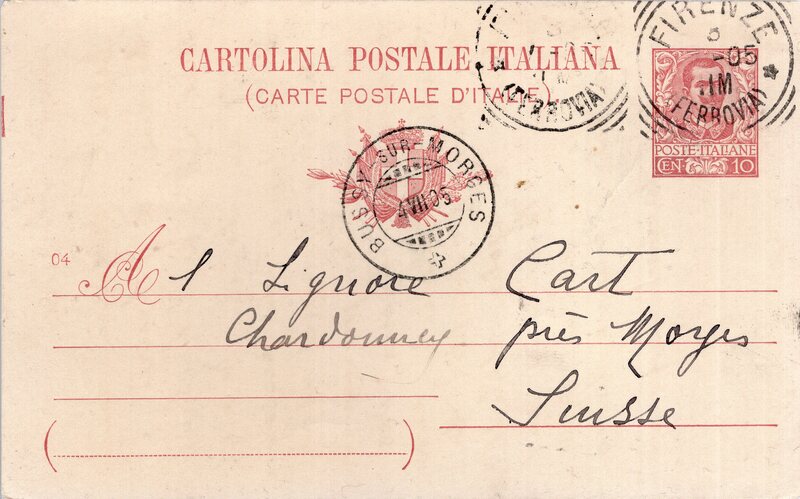 CARTOLINA POSTALE ITALIANA
(CARTE POSTALE D'ITALIE)
(FERROVIA)
FIRENZE
8
-05
1M
(FERROVIA)
POSTE·ITALIANE
CEN. 10
BUSSY-SUR-MORGES
VII 05
04
Al Signore Cart
Chardonney près Morges
Suisse